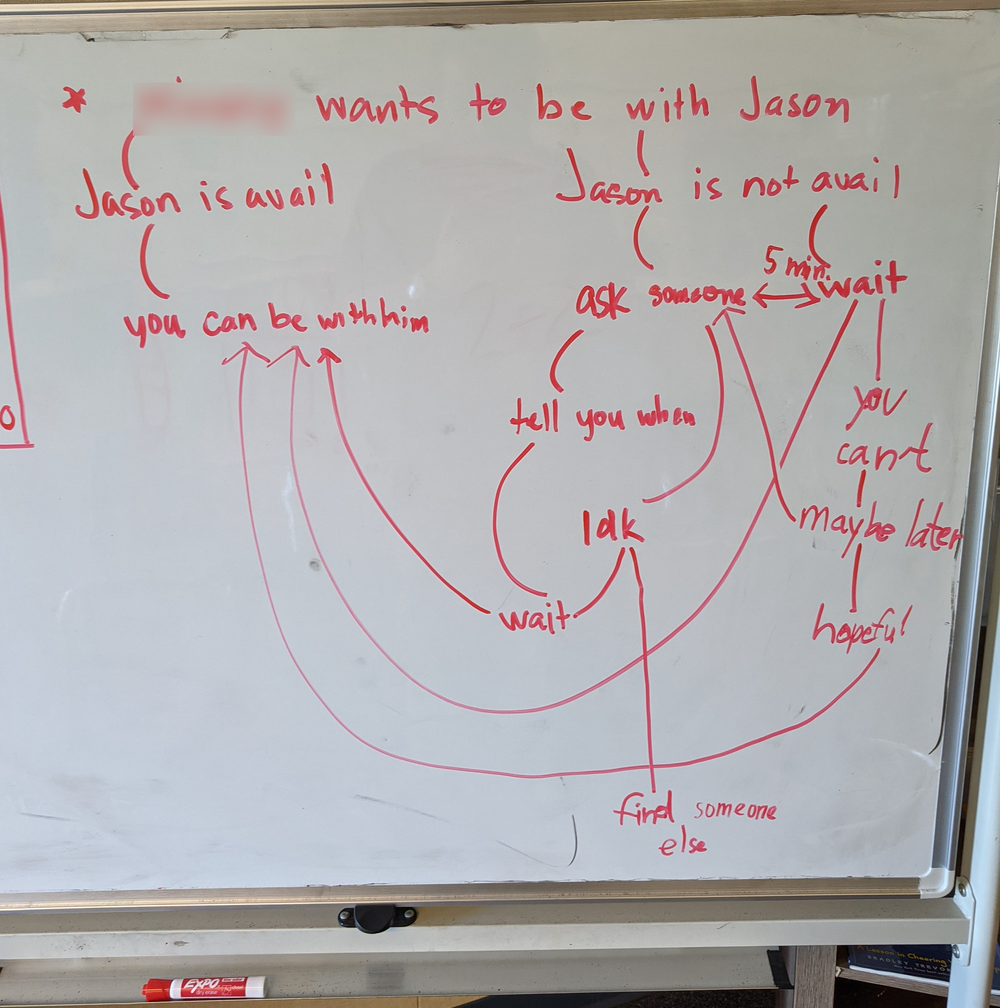 * wants to be with Jason
Jason is avail
Jason is not avail
5 min.
ask someone
wait
you can be with him
you
can't
tell you when
Idk
maybe later
wait
hopeful
find someone
else
EXPO
BRADLEY TREVOR